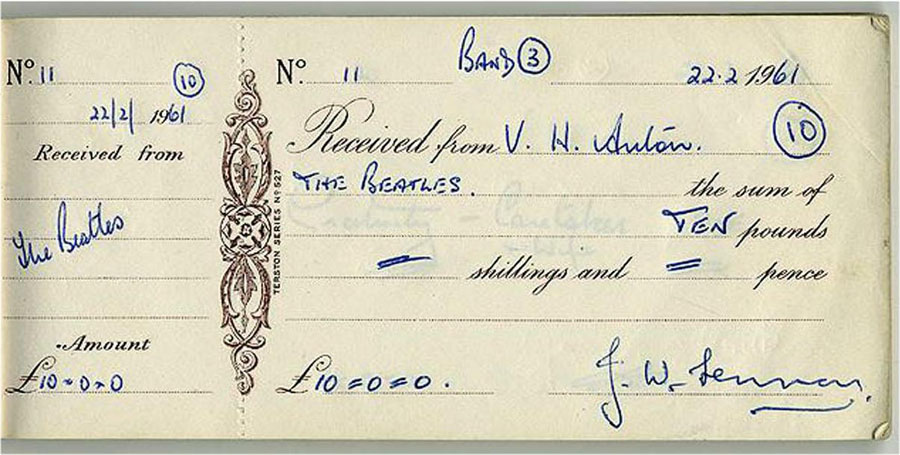 Nº 11 10
22/2/ 1961
Received from
The Beatles
Amount
£10=0=0
TERSTON SERIES Nº 527
Nº 11 BAND 3 22.2 1961
Received from V. H. Antón. 10
THE BEATLES. the sum of
TEN pounds
= shillings and = pence
£10=0=0. J. W. Lennon.